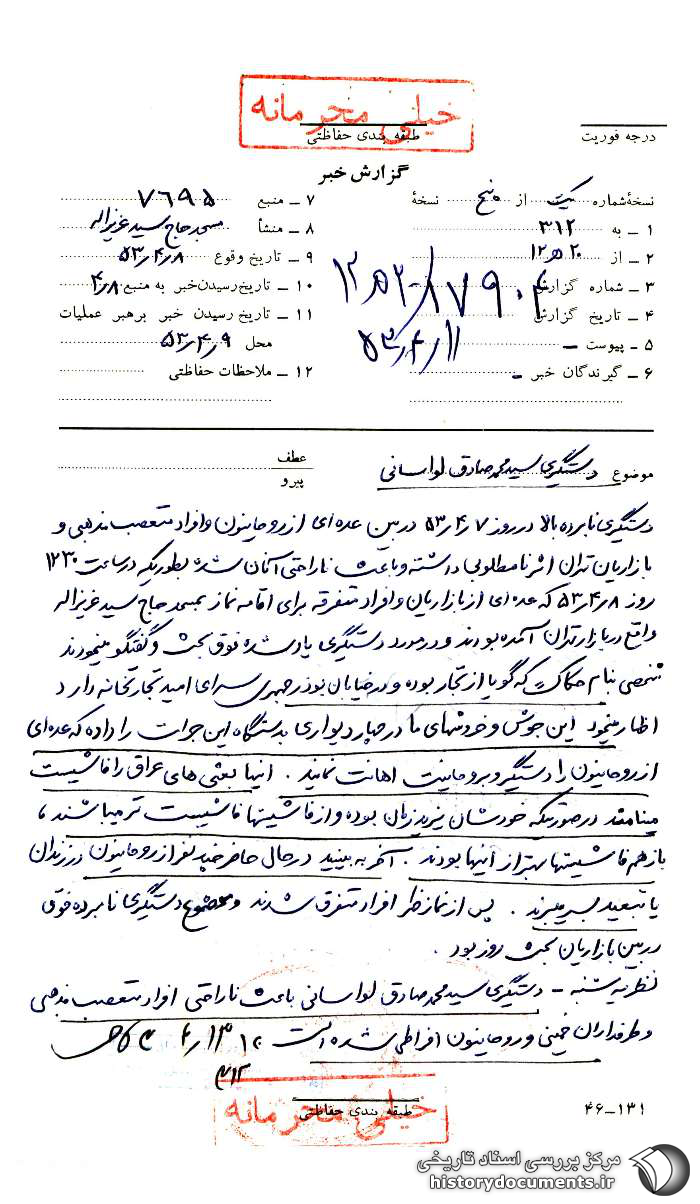 خیلی محرمانه
درجه فوریت
طبقه بندی حفاظتی
گزارش خبر
نسخهٔ شماره یک از پنج نسخهٔ
۱ ـ به ۳۱۲
۲ ـ از ۲۰ ه ۱۲
۳ ـ شماره گزارش ۱۷۹۰۲/ ۲۰ ه ۱۲
۴ ـ تاریخ گزارش ۵۳/۴/۱۱
۵ ـ پیوست ـ
۶ ـ گیرندگان خبر ـ
۷ ـ منبع ۷۶۹۵
۸ ـ منشأ مسجد حاج سید عزیزاله
۹ ـ تاریخ وقوع ۵۳/۴/۸
۱۰ ـ تاریخ رسیدن خبر به منبع ۴/۸
۱۱ ـ تاریخ رسیدن خبر برهبر عملیات
محل ۵۳/۴/۹
۱۲ ـ ملاحظات حفاظتی
موضوع دستگیری سید محمد صادق لواسانی
عطف
پیرو
دستگیری نامبرده بالا در روز ۵۳/۴/۷ در بین عده ای از روحانیون و افراد متعصب مذهبی و
بازاریان تهران اثر نامطلوبی داشته و باعث ناراحتی آنان شده بطوریکه در ساعت ۱۲۳۰
روز ۵۳/۴/۸ که عده ای از بازاریان و افراد متفرقه برای اقامه نماز بمسجد حاج سید عزیزاله
واقع در بازار تهران آمده بودند و در مورد دستگیری یاد شده فوق بحث و گفتگو مینمودند
شخصی بنام حکاک که گویا از تجار بوده و در خیابان بوذرجمهری سرای امید تجارتخانه دارد
اظهار مینمود این جوش و خروشهای ما در چهار دیواری بدستگاه این جرات را داده که عده ای
از روحانیون را دستگیر و بروحانیت اهانت نمایند . اینها بعثی های عراق را فاشیست
مینامند در صورتیکه خودشان یزید زمان بوده و از فاشیستها فاشیست تر میباشند ،
باز هم فاشیستها بهتر از اینها بودند . آخر به بینید در حال حاضر چند نفر از روحانیون در زندان
یا تبعید بسر میبرند . پس از نماز ظهر افراد متفرق شدند و موضوع دستگیری نامبرده فوق
در بین بازاریان بحث روز بود .
نظریه شنبه ـ دستگیری سید محمد صادق لواسانی باعث ناراحتی افراد متعصب مذهبی
و طرفداران خمینی و روحانیون افراطی شده است
۳۱۲
خیلی محرمانه
طبقه بندی حفاظتی
۴۶-۱۳۱
مرکز بررسی اسناد تاریخی
historydocuments.ir